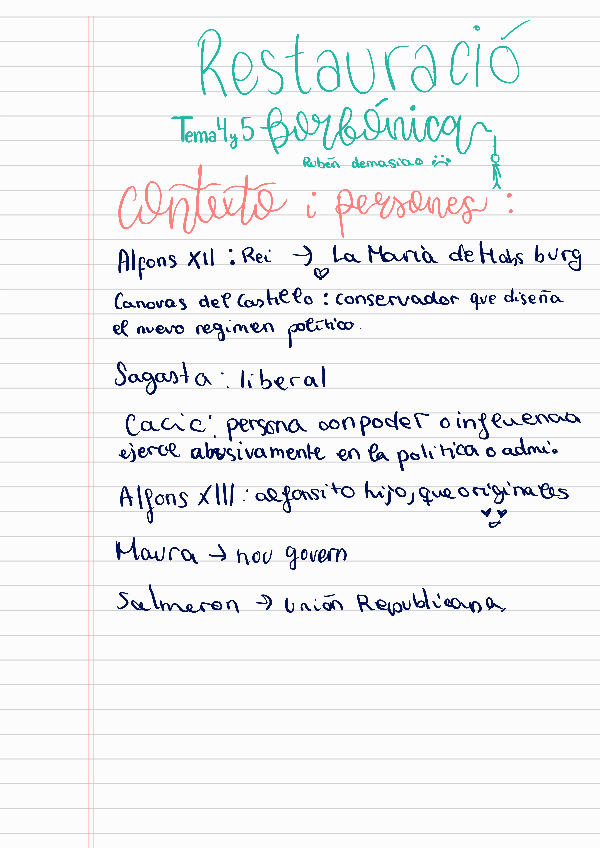 Restauració
Tema 4 y 5 Borbónica
Rubén demasiao
Contexto i persones :
Alfons XII : Rei → La Maria de Habsburg
Canovas del Castillo : conservador que diseña
el nuevo regimen político.
Sagasta : liberal
Cacic : persona con poder o influencia
ejerce abusivamente en la politica o admi.
Alfons XIII : alfonsito hijo, que originales
Maura → nou govern
Salmeron → Unión Republicana